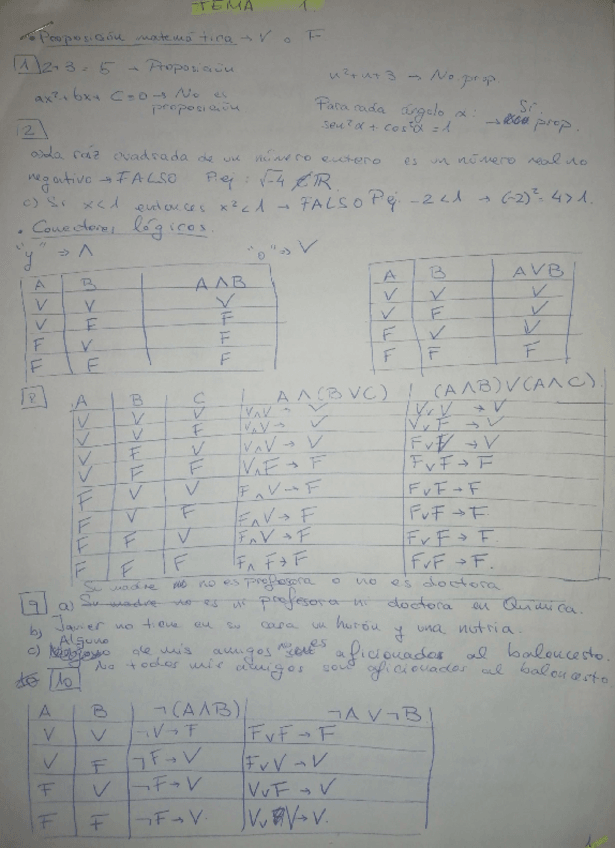 TEMA 1
Proposición matemática → V o F
1 2+3=5 → Proposición n²+n+3 → No prop.
ax²+bx+c=0 → No es proposición Para cada ángulo α: sen²α+cos²α=1 → Sí prop.
2
raíz cuadrada de un número entero es un número real no
negativo → FALSO P.ej: √-4 ∉ ℝ.
c) Si x<1 entonces x²<1 → FALSO P.ej. -2<1 → (-2)²=4>1.
• Conectores lógicos.
"y" ⇒ ∧ "o" ⇒ ∨
A B A∧B
V V V
V F F
F V F
F F F
A B A∨B
V V V
V F V
F V V
F F F
8
A B C A∧(B∨C) (A∧B)∨(A∧C).
V V V V∧V → V V∨V → V
V V F V∧V → V V∨F → V
V F V V∧V → V F∨V → V
V F F V∧F → F F∨F → F
F V V F∧V → F F∨F → F
F V F F∧V → F F∨F → F
F F V F∧V → F F∨F → F.
F F F F∧F → F F∨F → F.
Su madre no es profesora o no es doctora
9 a) Su madre no es ni profesora ni doctora en Química.
b) Javier no tiene en su casa un hurón y una nutria.
c) Alguno de mis amigos no es aficionados al baloncesto.
No todos mis amigos son aficionados al baloncesto
10
A B ¬(A∧B) ¬A∨¬B
V V ¬V → F F∨F → F
V F ¬F → V F∨V → V
F V ¬F → V V∨F → V
F F ¬F → V. V∨V → V.
1